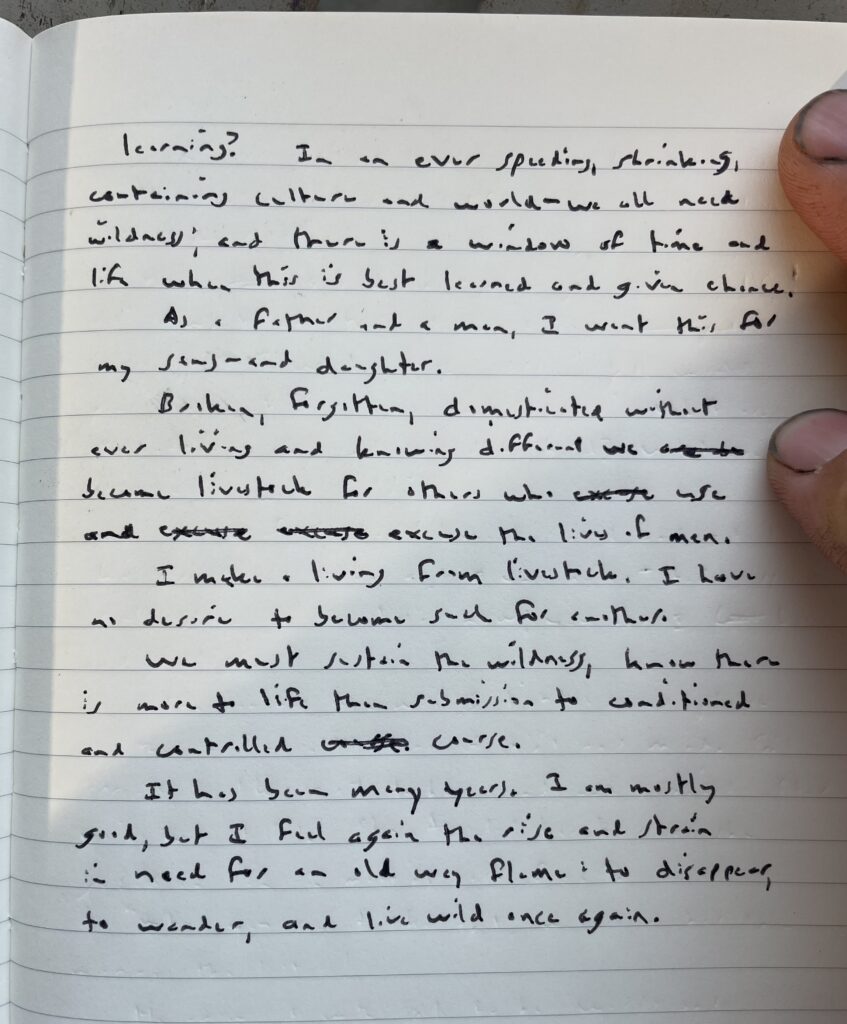 learning? In an ever speeding, shrinking,
containing culture and world-we all need
wildness; and there is a window of time and
life when this is best learned and given chance.
As a father and a man, I want this for
my sons-and daughter.
Broken, forgotten, domesticated without
ever living and knowing different we
become livestock for others who use
and excuse the lives of men.
I make a living from livestock. I have
no desire to become such for another.
We must sustain the wildness, know there
is more to life than submission to conditioned
and controlled course.
It has been many years. I am mostly
good, but I feel again the rise and strain
in need for an old way flame: to disappear,
to wander, and live wild once again.